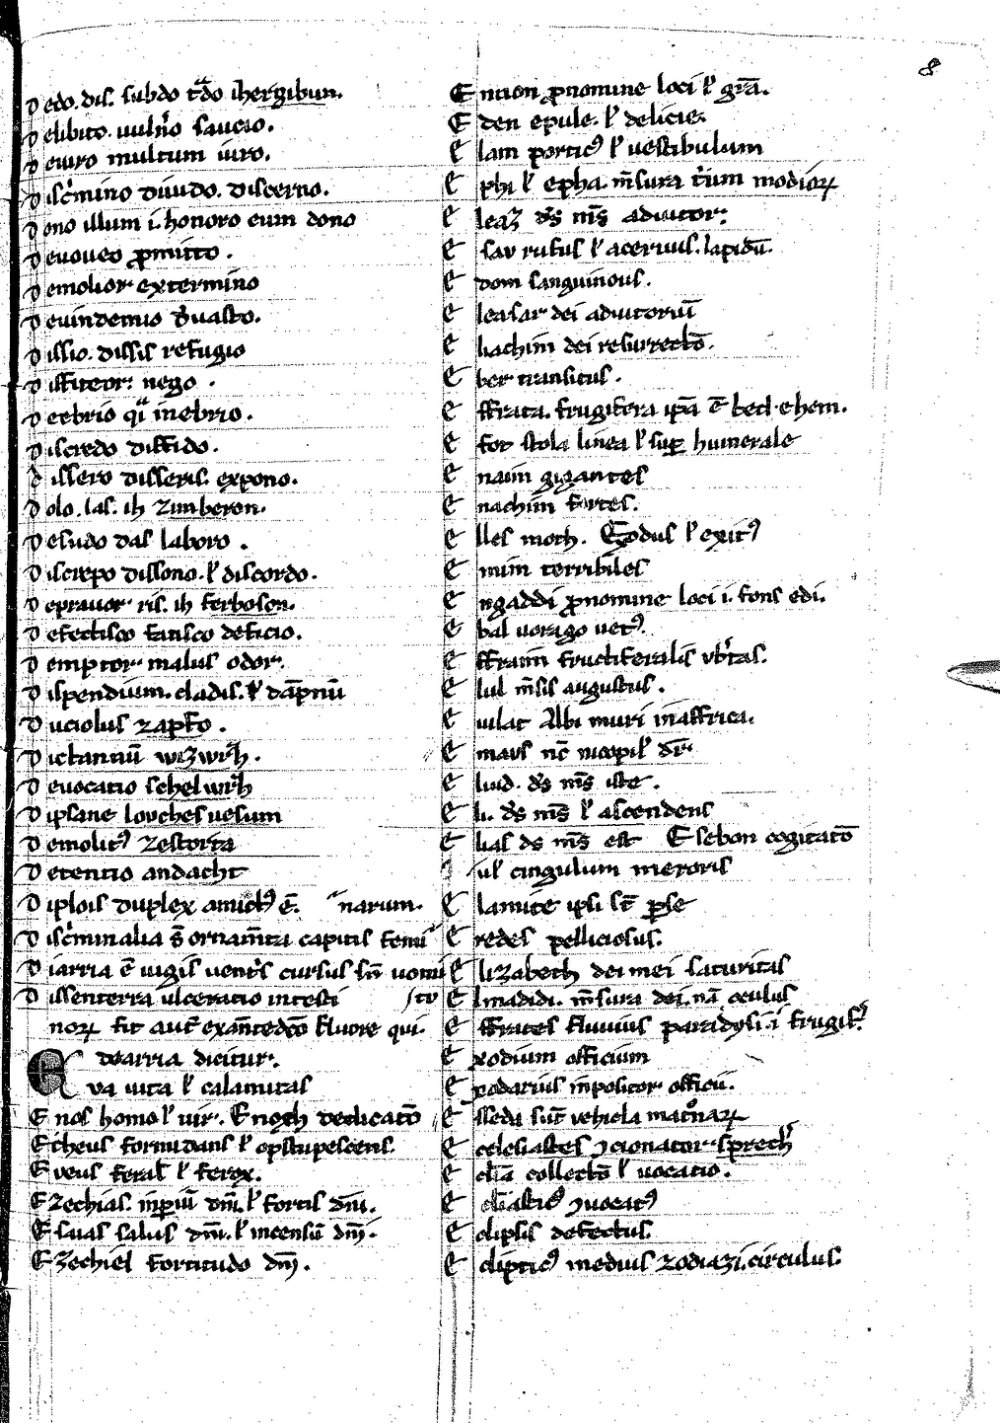 8
Dedo. dis. subdo t͛do ih ergibun.
Delibuto. uuln̄o saucio.
Deiuro multum iuro.
Disc̓mino diuido. discerno.
Dono illum i. honoro eum dono
Deuoueo ꝓmitto.
Demolior extermino
Deuindemio d̓uasto.
Dissio. dissis refugio
Diffiteor: nego.
Deebrio qͣ inebrio.
Discredo diffido.
Dissero disseris. expono.
Dolo. las. ih zimberon.
Desudo das laboro.
Discrepo dissono. ł discordo.
Deprauor. ris. ih ferboson.
Defectisco fatisco deficio.
Demptor malus odor.
Dispendium. cladis. ł dāpnū
Duciolus zapfo.
Dictannū wizwrh.
Deuocatio schelwrh
Dipsane louches uesum
Demolitꝰ zestorta
Detentio andacht
Diplois duplex amictꝰ ē. narum.
Disc̓minalia s̄ ornam̄ta capitis femi
Diarria ē iugis uent̓s cursus sn̄ uomi
Dissenterra ulceratio intesti tu
noꝝ fit aut̄ exan̄tedēo fluore qui.
dearria dicitur.
Eua uita ł calamitas
Enos homo ł uir. Enoch dedicatō
Etheus formidans ł opstupescens.
Eueus feral ł ferox.
Ezechias. inperiū dn̄i. ł fortis dn̄i.
Esaias salus dn̄i. ł incensū dn̄i.
Ezechiel fortitudo dn̄i.
Encien ꝓnomine loci ł grā.
Eden epule. ł delicie.
Elam porticꝰ ł uestibulum
Ephi ł epha. m̄sura t̓ium modioꝝ
Eleaz ds̄ ms̄ adiutor.
Esau rufus ł aceruus. lapidū.
Edom sanguineus.
Eleasar dei adiutoriū
Eliachim dei resurrectō.
Eber transitus.
Effrata. frugifera ip̄a ē betlehem.
Efot stola linea ł suꝑ humerale
Enaim gigantes
Enachim fortes.
Elles moth. Exodus ł exitꝰ
Emim terribiles
Engaddi ꝓnomine loci i. fons edi.
Ebal uorago uetꝰ.
Effraim fructiferalis vb̓tas.
Elul m̄sis augustus.
Euilat Albi muri inaffrica.
Emaus
Eliud. ds̄ ms̄ iste.
Eli. ds̄ ms̄ ł ascendens
Elias ds ms̄ est Esebon cogitatō
cingulum meroris
Elamite ipsi st̄ ꝑse
Eredes pelliciosus.
Elizabeth dei mei saturitas
Elmadidi. m̄sura dei.
Effrates fluuius paridysi. i frugif̓
Exodium officium
Exodarius inpositor officii.
Esseda sūt vehicla matͦnaꝝ
Ecclesiastes ꝯcionator. sprech̓
Ecclīa collectō ł uocatio.
Ecclīasticꝰ ꝯuocatꝰ
Eclipsis defectus.
Eclipticꝰ medius zodiazi. circulus.